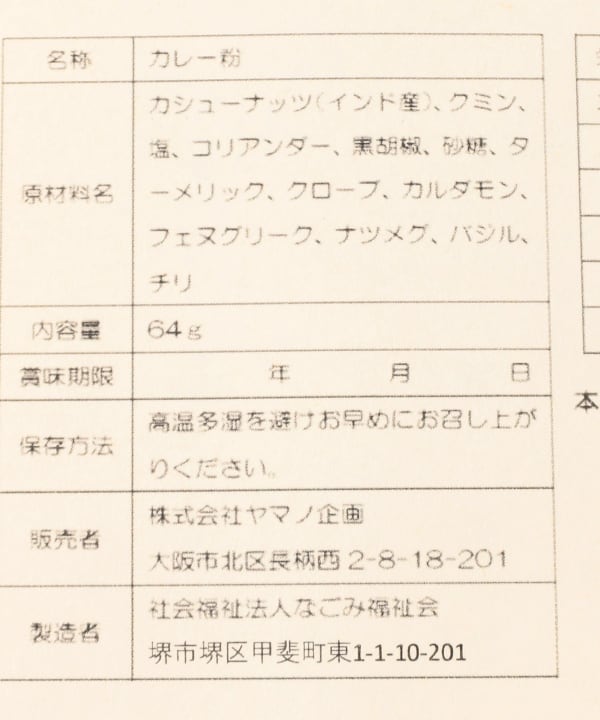 名称 カレー粉
カシューナッツ(インド産)、クミン、
塩、コリアンダー、黒胡椒、砂糖、タ
原材料名 ーメリック、クローブ、カルダモン、
フェヌグリーク、ナツメグ、バジル、
チリ
内容量 64g
賞味期限 年 月 日
保存方法 高温多湿を避けお早めにお召し上が
りください。
販売者 株式会社ヤマノ企画
大阪市北区長柄西2-8-18-201
製造者 社会福祉法人なごみ福祉会
堺市堺区甲斐町東1-1-10-201
本